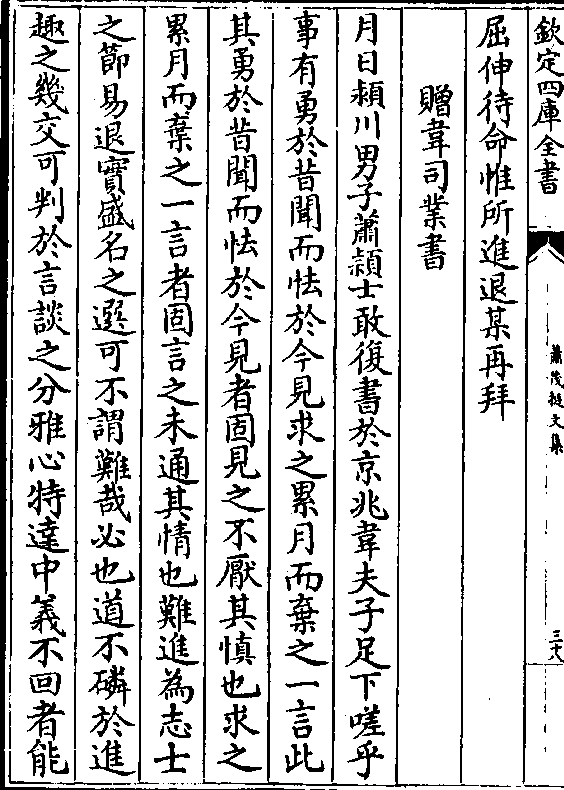 欽定四庫全書
蕭茂挺文集
三十八
屈伸待命惟所進退某再拜
贈韋司業書
月日潁川男子蕭潁士敢復書於京兆韋夫子足下嗟乎
事有勇於昔聞而怯於今見求之累月而棄之一言此
其勇於昔聞而怯於今見者固見之不厭其慎也求之
累月而棄之一言者固言之未通其情也難進為志士
之節易退實盛名之選可不謂難哉必也道不磷於進
趣之幾交可判於言談之分雅心特達中義不回者能